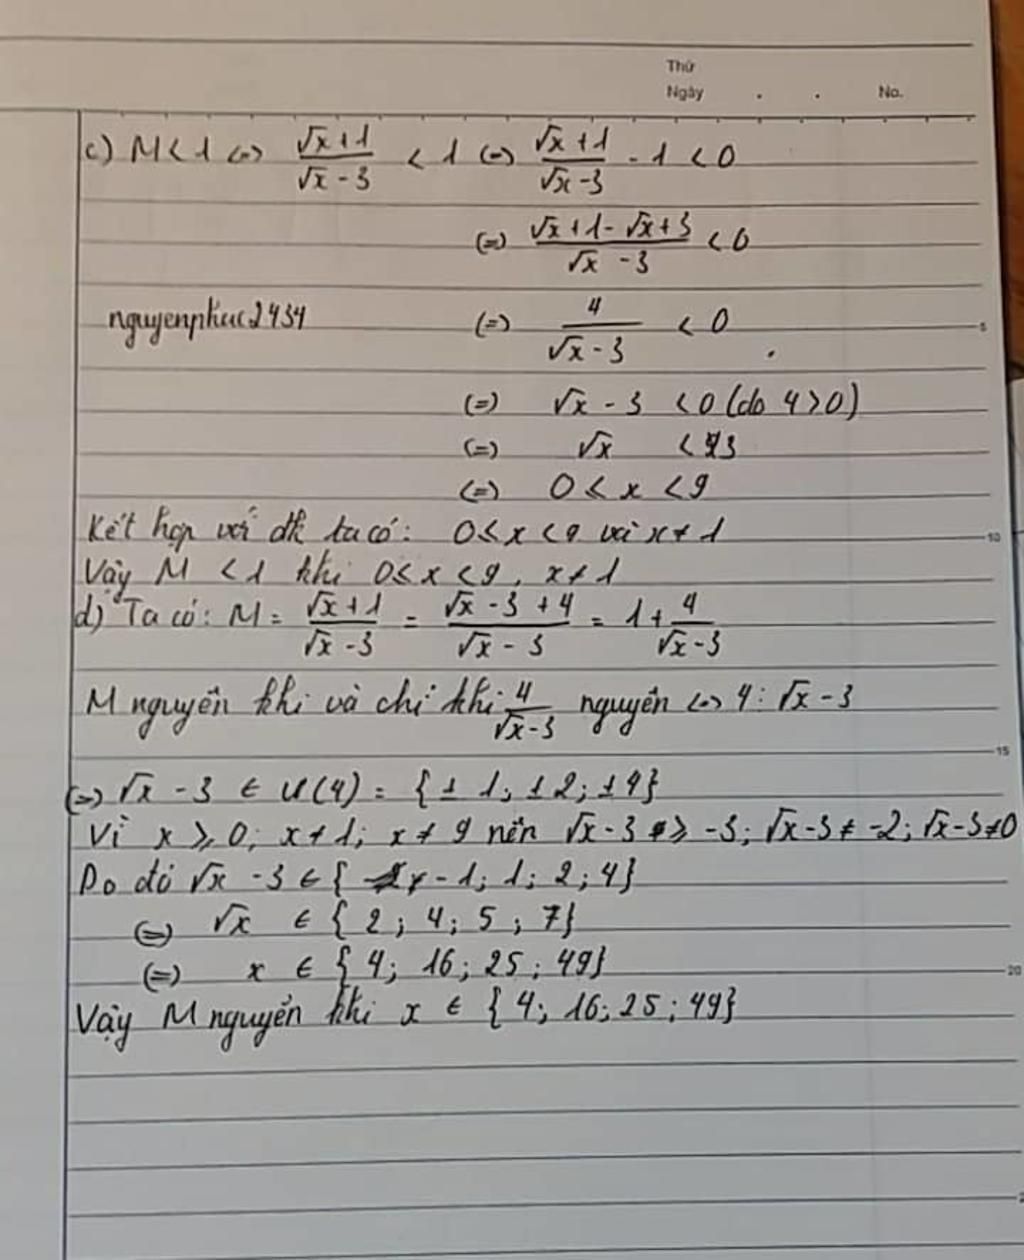 Thứ
Ngày . . No.
c) M < 1 <=> (√x + 1)/(√x - 3) < 1 (=) (√x + 1)/(√x - 3) - 1 < 0
(=) (√x + 1 - √x + 3)/(√x - 3) < 0
nguyenphuc2434 (=) 4/(√x - 3) < 0
5
(=) √x - 3 < 0 (do 4 > 0)
(=) √x < 3
(=) 0 ≤ x < 9
Kết hợp với đk ta có: 0 ≤ x < 9 và x ≠ 1
10
Vậy M < 1 khi 0 ≤ x < 9, x ≠ 1
d) Ta có: M = (√x + 1)/(√x - 3) = (√x - 3 + 4)/(√x - 3) = 1 + 4/(√x - 3)
M nguyên khi và chỉ khi 4/(√x - 3) nguyên <=> 4 ⋮ √x - 3
15
(=) √x - 3 ∈ Ư(4) = {±1; ±2; ±4}
Vì x ≥ 0; x ≠ 1; x ≠ 9 nên √x - 3 ≥ -3; √x - 3 ≠ -2; √x - 3 ≠ 0
Do đó √x - 3 ∈ { -1; 1; 2; 4}
(=) √x ∈ {2; 4; 5; 7}
(=) x ∈ {4; 16; 25; 49}
20
Vậy M nguyên khi x ∈ {4; 16; 25; 49}